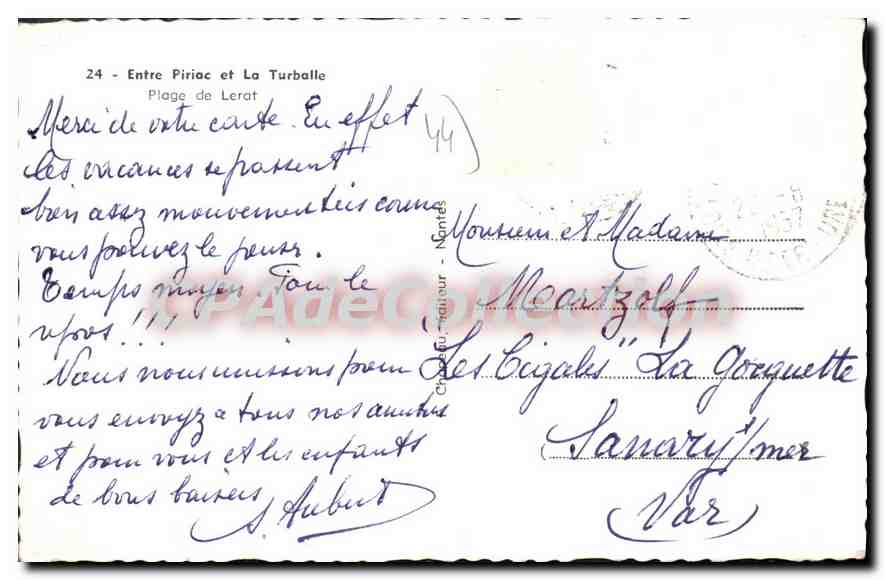 24 - Entre Piriac et La Turballe
Plage de Lerat
Merci de votre carte. En effet
les vacances se passent
bien assez mouvementées comme
vous pouvez le penser.
Temps moyen. Tous le
repos !!!
Nous nous unissons pour
vous envoyer a tous nos amitiés
et pour vous et les enfants
de bons baisers
S. Aubert
44)
Chapeau, Editeur - Nantes
Monsieur et Madame
Moortzolf
"Les Cigales" La Gorguette
Sanary s/mer
(Var)
CPAdeCollection